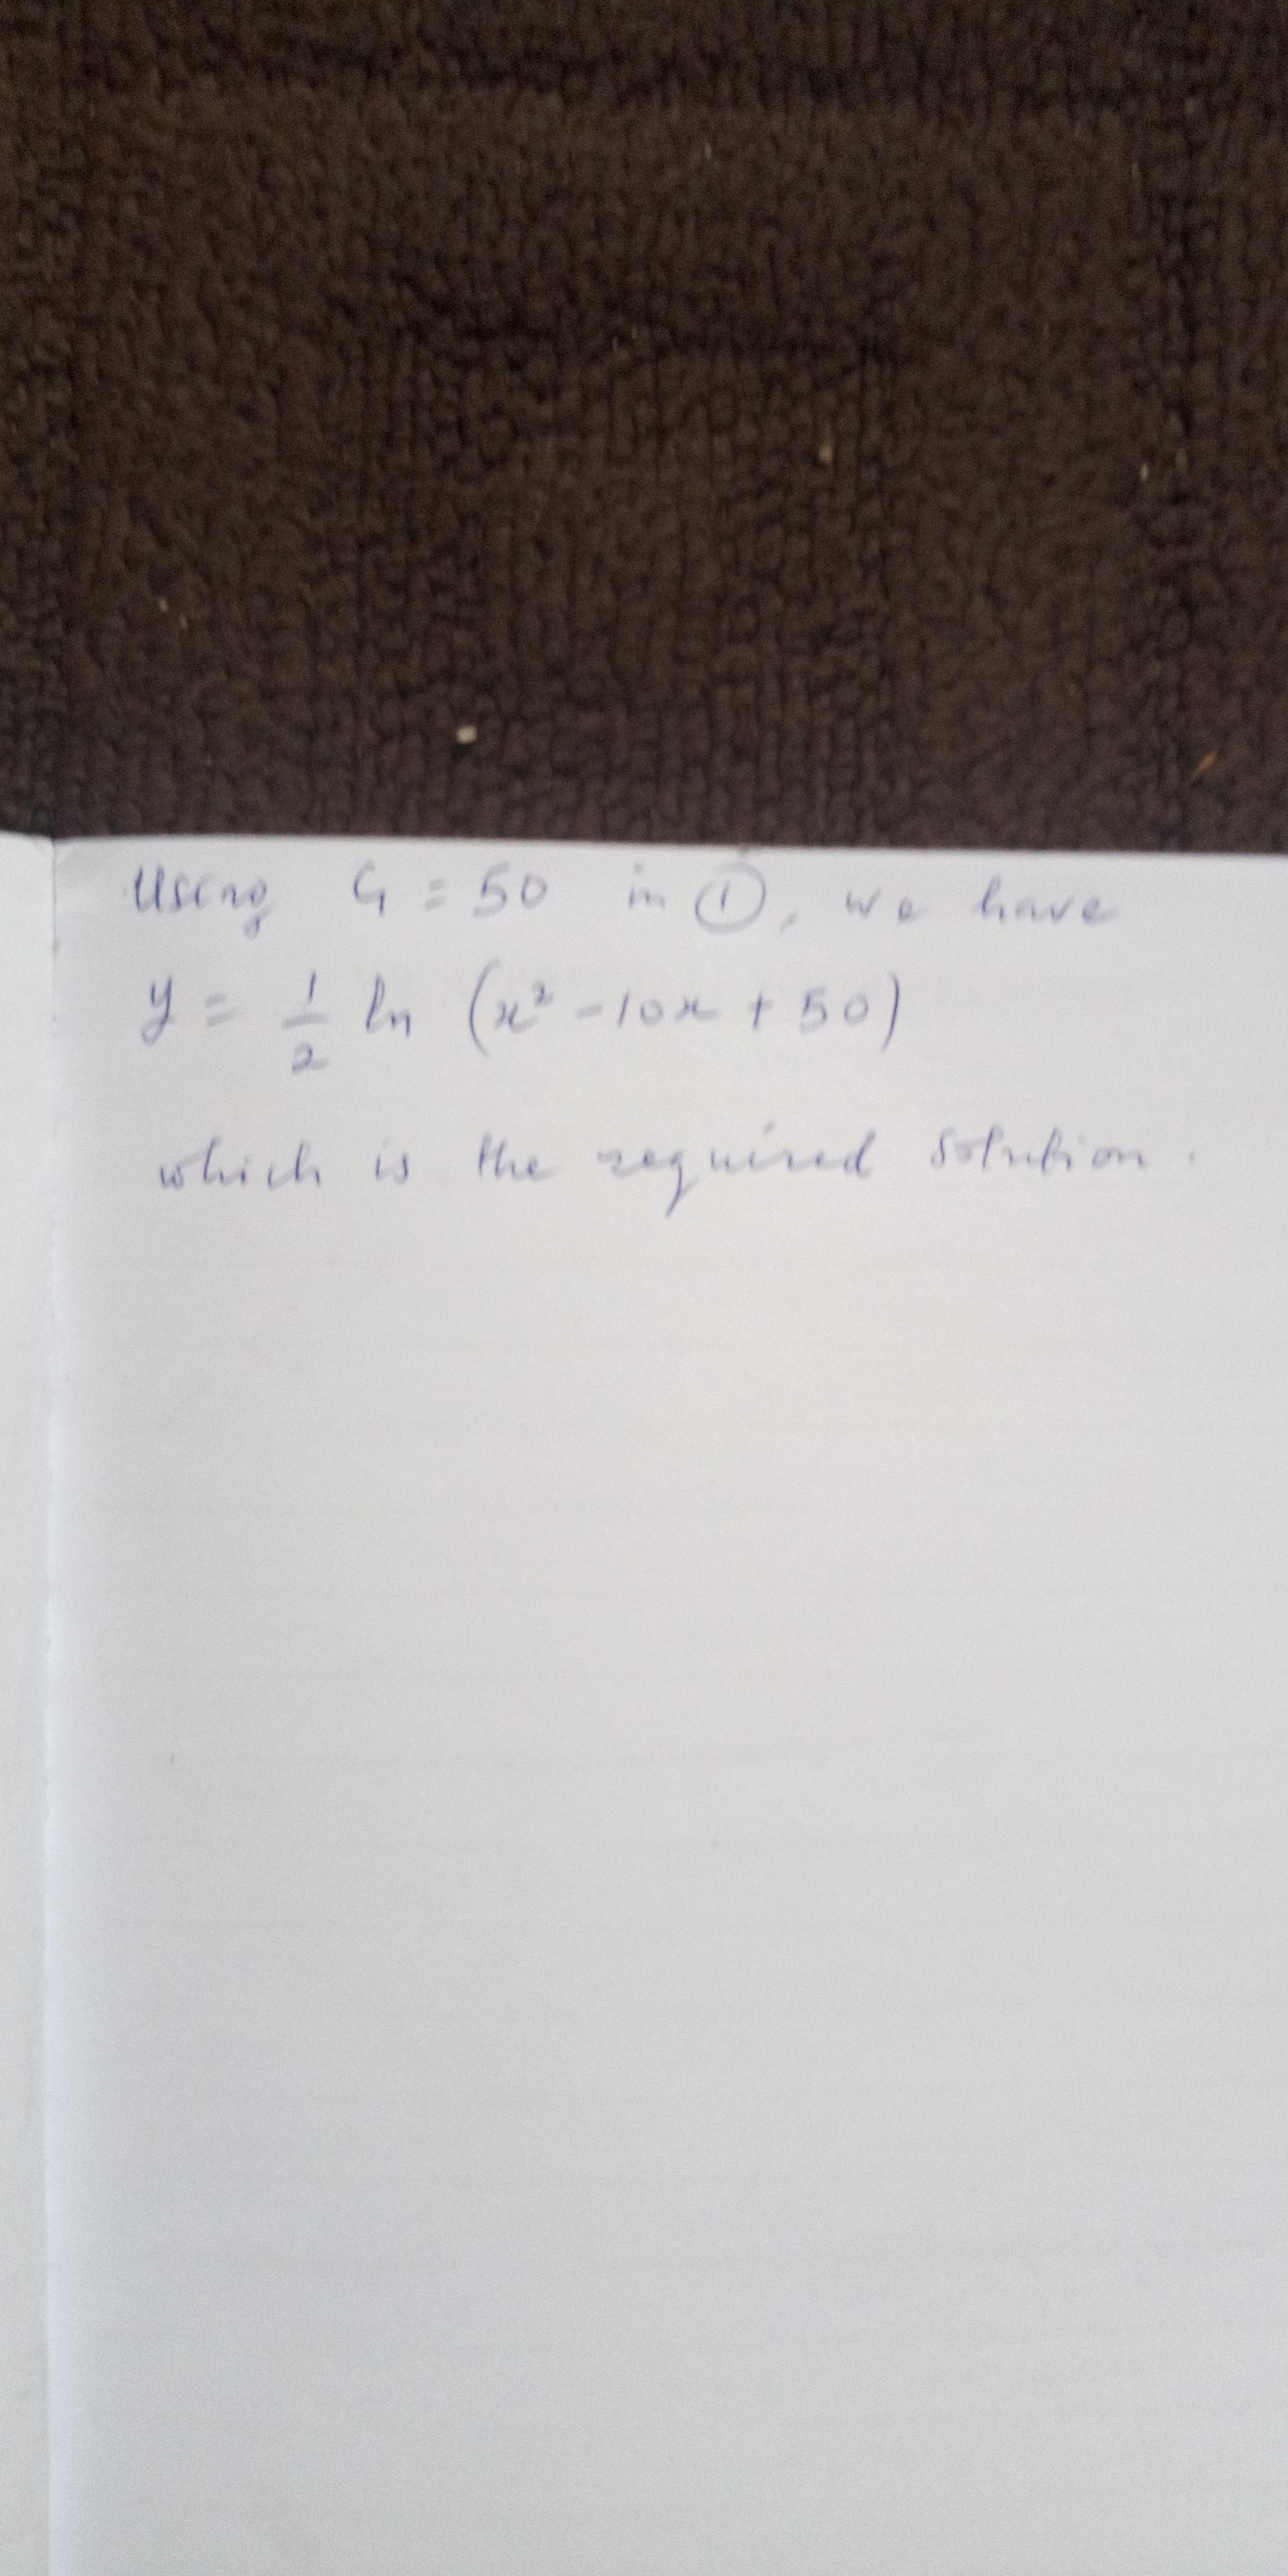 Using C₁ = 50 in ①, we have
y = 1/2 ln (x² - 10x + 50)
which is the required solution.